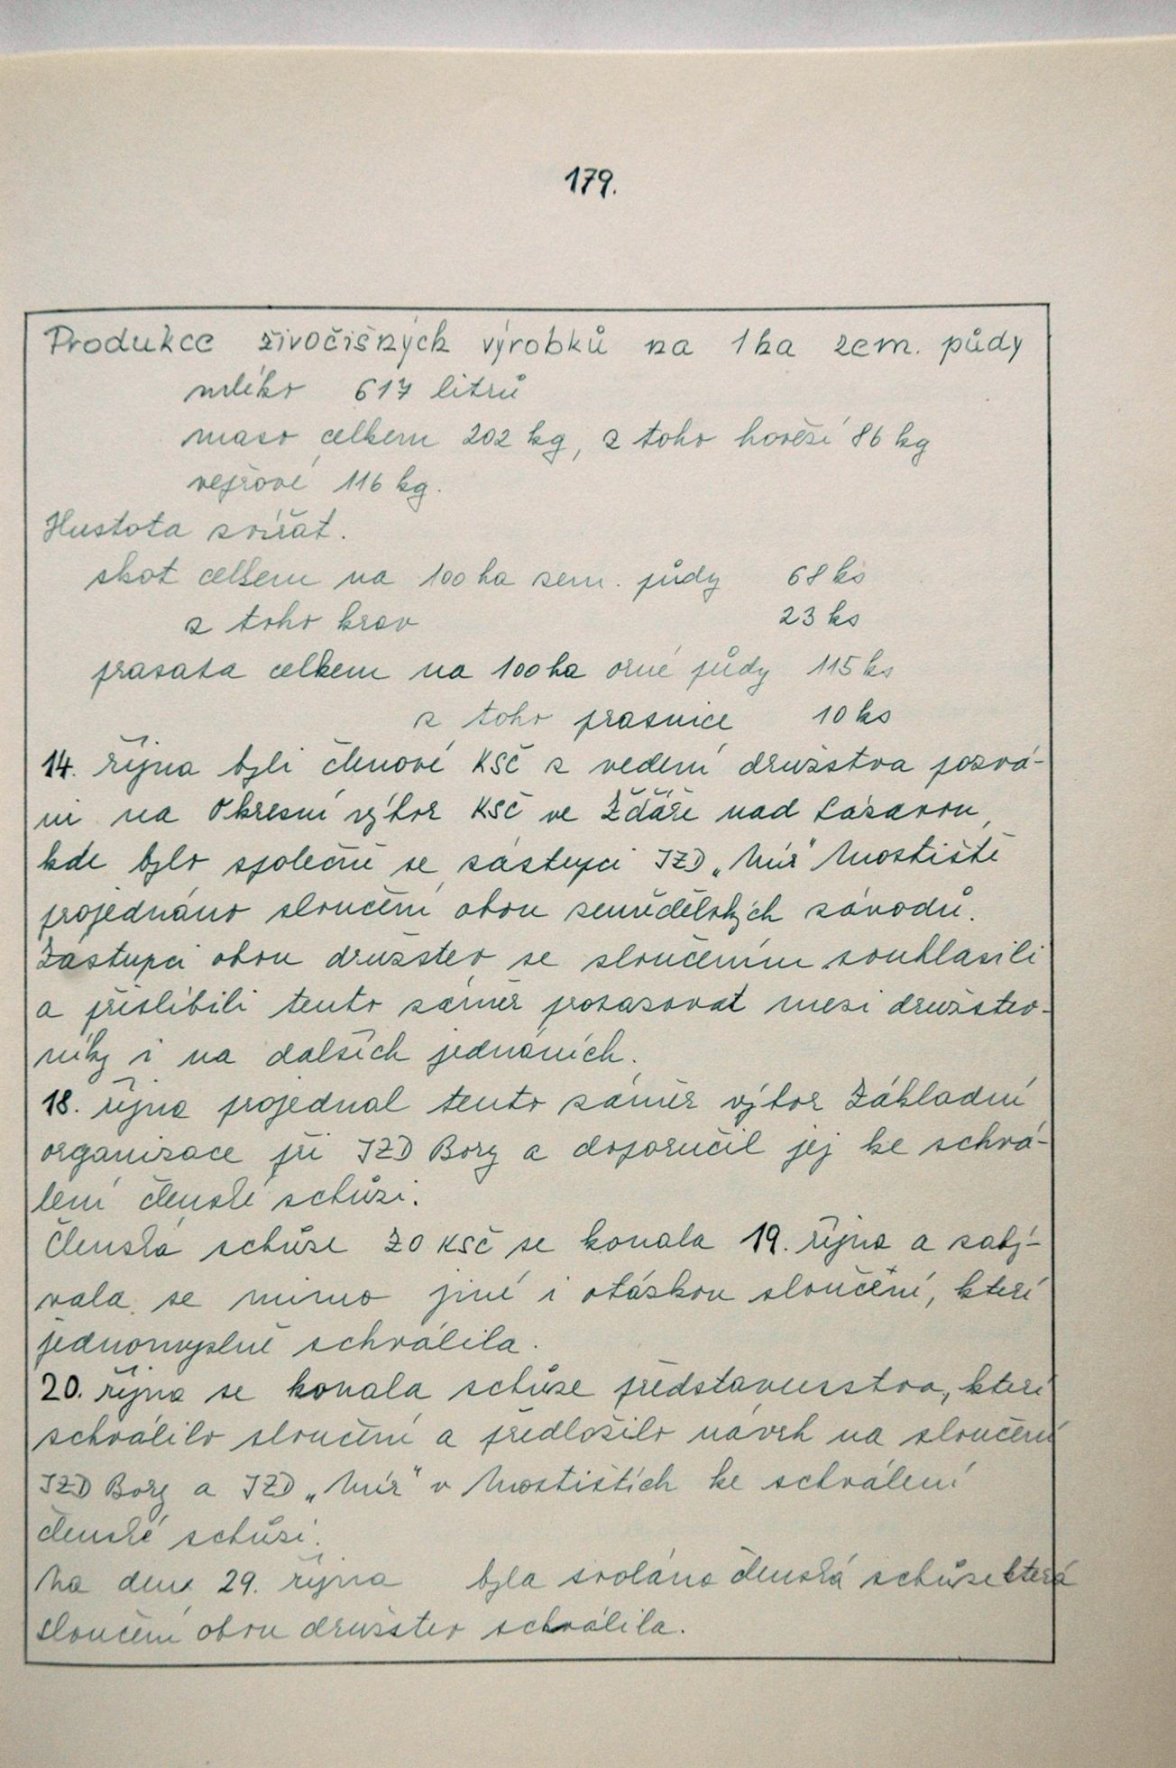 179.
Produkce živočišných výrobků na 1 ha zem. půdy
mléko 617 litrů
maso celkem 202 kg, z toho hovězí 86 kg
vepřové 116 kg.
Hustota zvířat.
skot celkem na 100 ha zem. půdy 68 ks
z toho krav 23 ks
prasata celkem na 100 ha orné půdy 115 ks
z toho prasnice 10 ks
14. října byli členové KSČ z vedení družstva pozvá-
ni na Okresní výbor KSČ ve Žďáře nad Sázavou,
kde bylo společně se zástupci JZD „Mír" Mostiště
projednáno sloučení obou zemědělských závodů.
Zástupci obou družstev se sloučením souhlasili
a přislíbili tento záměr prosazovat mezi družstev-
níky i na dalších jednáních.
18. října projednal tento záměr výbor Základní
organizace při JZD Bory a doporučil jej ke schvá-
lení členské schůzi.
Členská schůze ZO KSČ se konala 19. října a zabý-
vala se mimo jiné i otázkou sloučení, které
jednomyslně schválila.
20. října se konala schůze představenstva, které
schválilo sloučení a předložilo návrh na sloučení
JZD Bory a JZD „Mír" v Mostištích ke schválení
členské schůzi.
Na den 29. října byla svolána členská schůze která
sloučení obou družstev schválila.